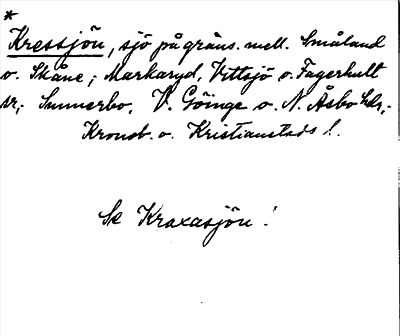 *
Kressjön, sjö på gräns. mell. Småland
o. Skåne; Markaryd, Vittsjö o. Fagerhult
sr; Sunnerbo, V. Göinge o. N. Åsbo hdr,;
Kronob. o. Kristianstads l.
Se Kraxasjön!